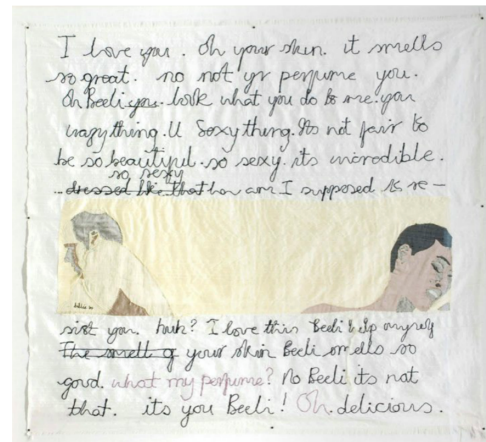 I love you. Oh your skin. it smells
so great. no not yr perfume you.
Oh Beeli you. look what you do to me. you
crazy thing. U Sexy thing. Its not fair to
be so beautiful. so sexy. its incredible.
so sexy
dressed like that how am I supposed to re-
sist you. huh? I love this Beeli help myself
The smell of your skin Beeli smells so
good. what my perfume? No Beeli its not
that. its you Beeli! Oh. delicious.